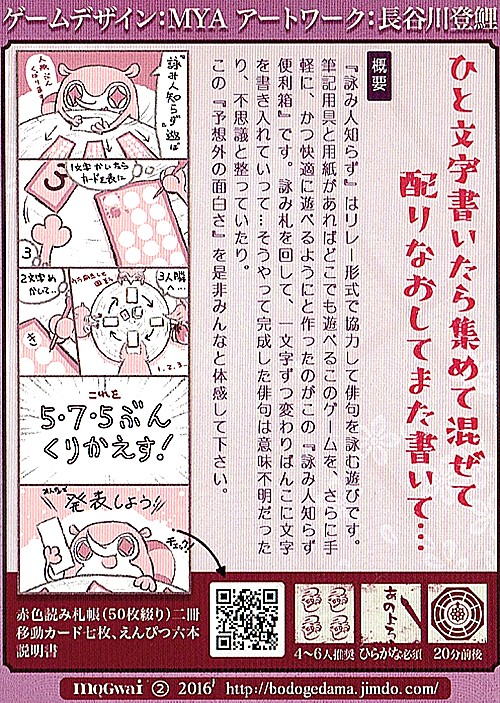 ゲームデザイン:MYA アートワーク:長谷川登鯉
ひと文字書いたら集めて混ぜて
配りなおしてまた書いて…
概要
『詠み人知らず』はリレー形式で協力して俳句を詠む遊びです。
筆記用具と用紙があればどこでも遊べるこのゲームを、さらに手
軽に、かつ快適に遊べるようにと作ったのがこの『詠み人知らず
便利箱』です。詠み札を回して、一文字ずつ変わりばんこに文字
を書き入れていって…そうやって完成した俳句は意味不明だった
り、不思議と整っていたり。
この『予想外の面白さ』を是非みんなと体感して下さい。
"詠み人知らず"遊ば
人数ぶん
くばります
1文字かいたら
カードを表に
う
3
2文字め
かいて…
き
3人隣
へ…
1.2.3…
これを
5・7・5ぶん
くりかえす!
みんなで
発表しよう!!
チェック!
赤色読み札帳(50枚綴り)二冊
移動カード七枚、えんぴつ六本
説明書
4〜6人推奨
あのよろ
ひらがな必須
20分前後
mogwai ② 2016 http://bodogedama.jimdo.com/